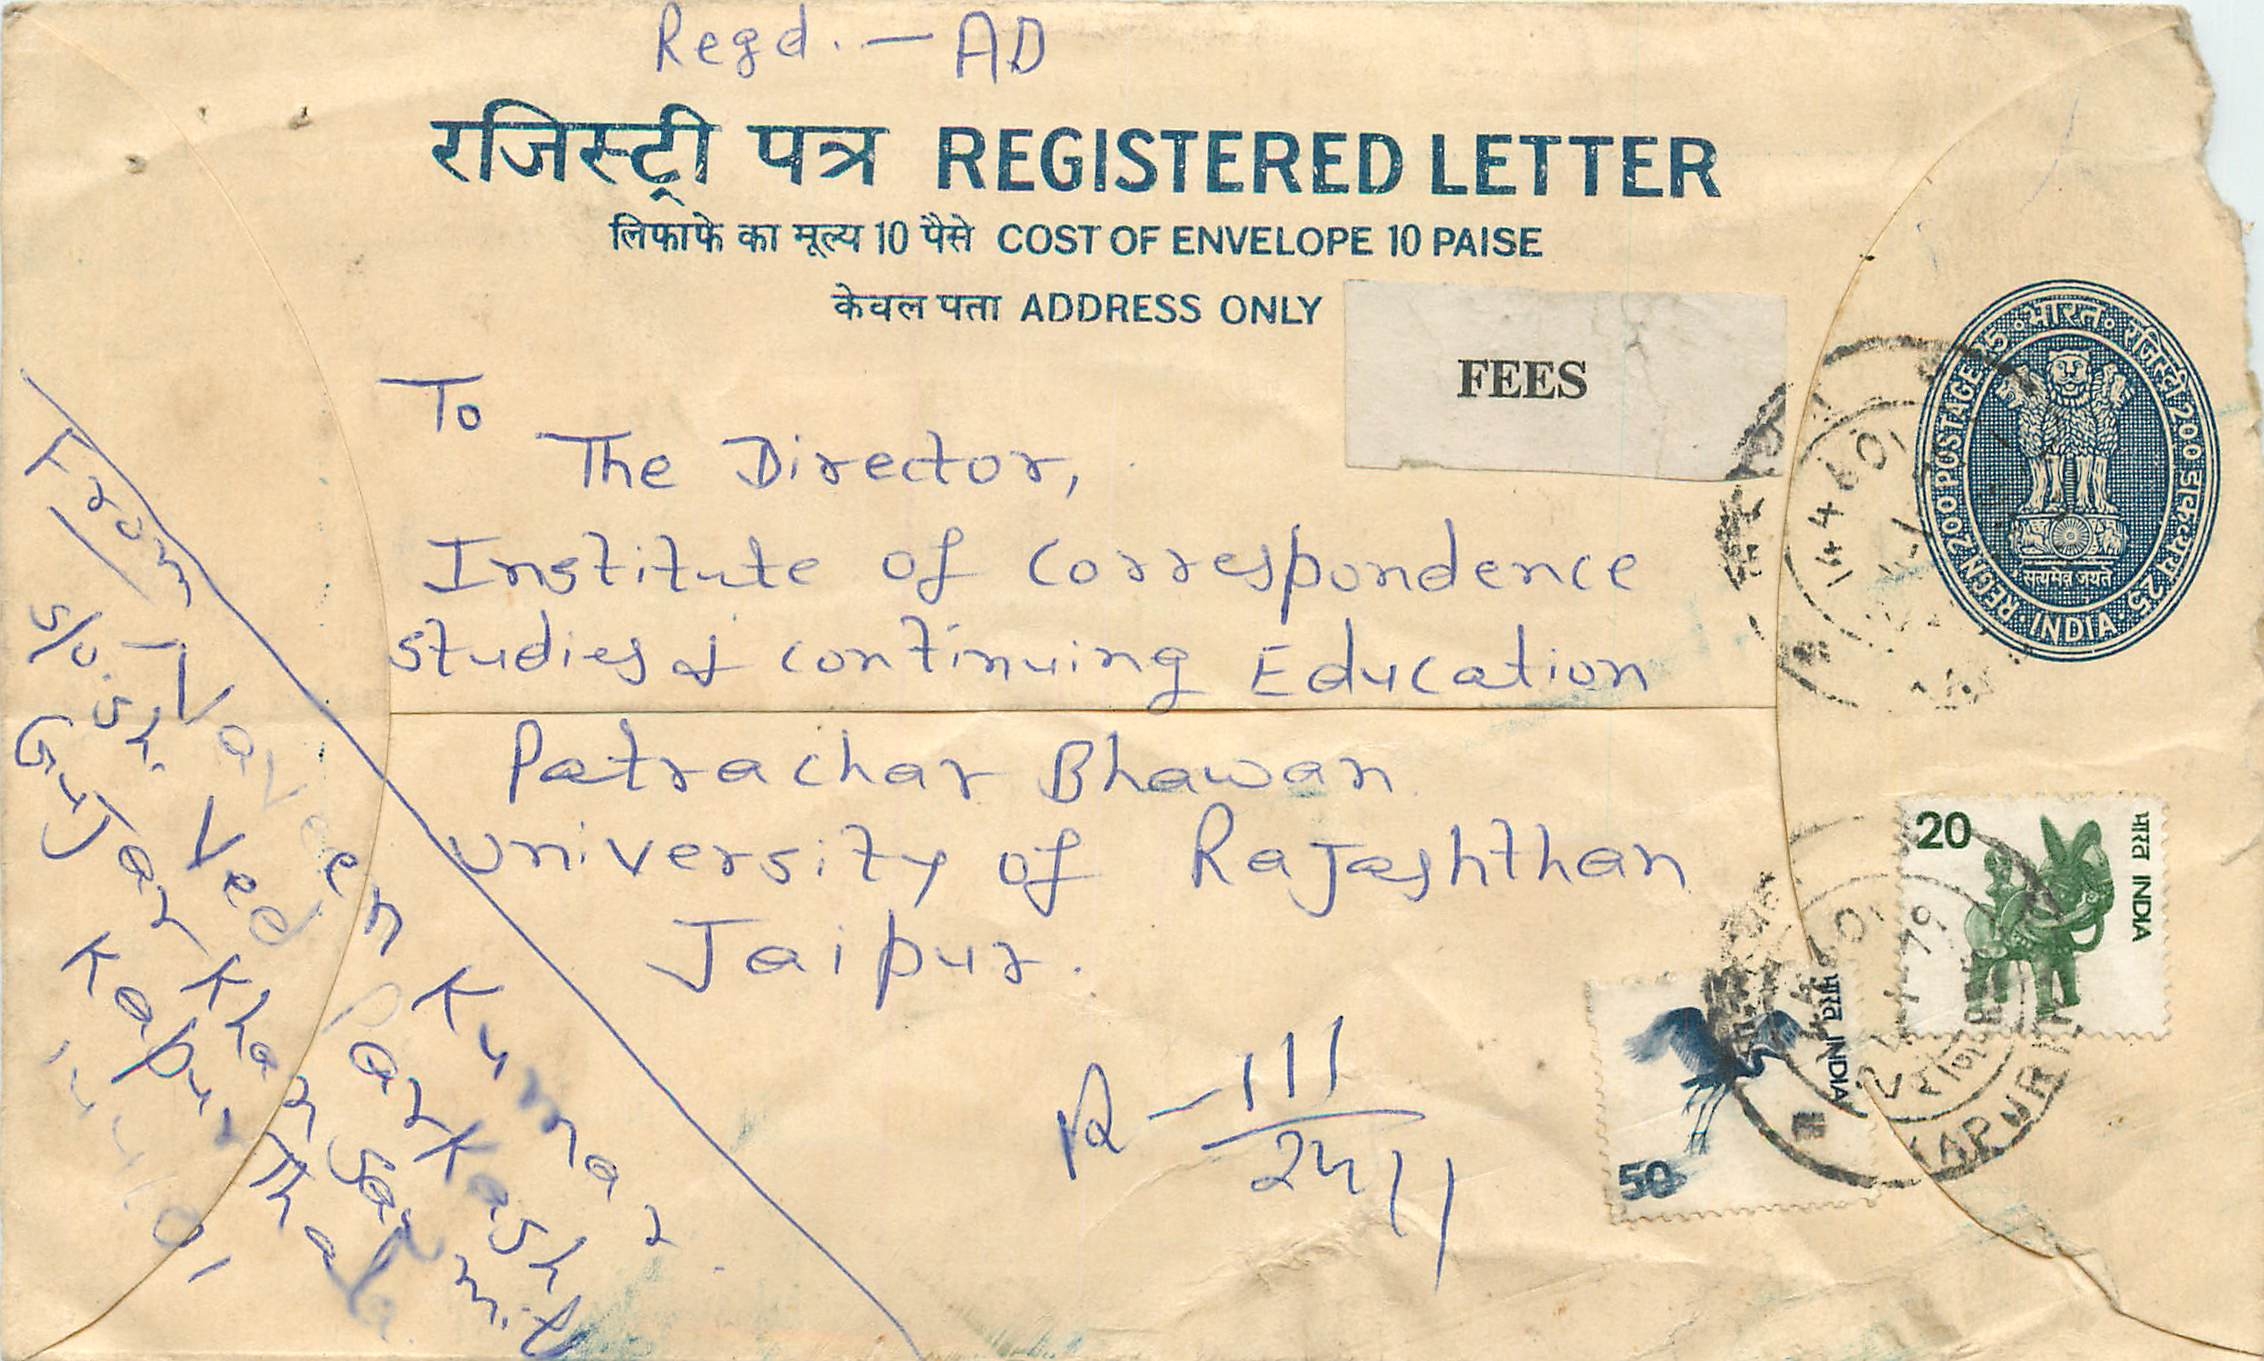 Regd. — AD
रजिस्ट्री पत्र REGISTERED LETTER
लिफाफे का मूल्य 10 पैसे COST OF ENVELOPE 10 PAISE
केवल पता ADDRESS ONLY
FEES
भारत रजिस्ट्री 200 डाकव्यय 25
REGN 200 POSTAGE 25
सत्यमेव जयते
INDIA
144601
To
The Director,
Institute of Correspondence
Studies & Continuing Education
Patrachar Bhawan
University of Rajashthan
Jaipur.
From
Naveen Kumar
S/o. Sh. Ved Parkash
Gujar Khan
Kapur Thala
R - 111
24/1
20
भारत INDIA
50
भारत INDIA
79